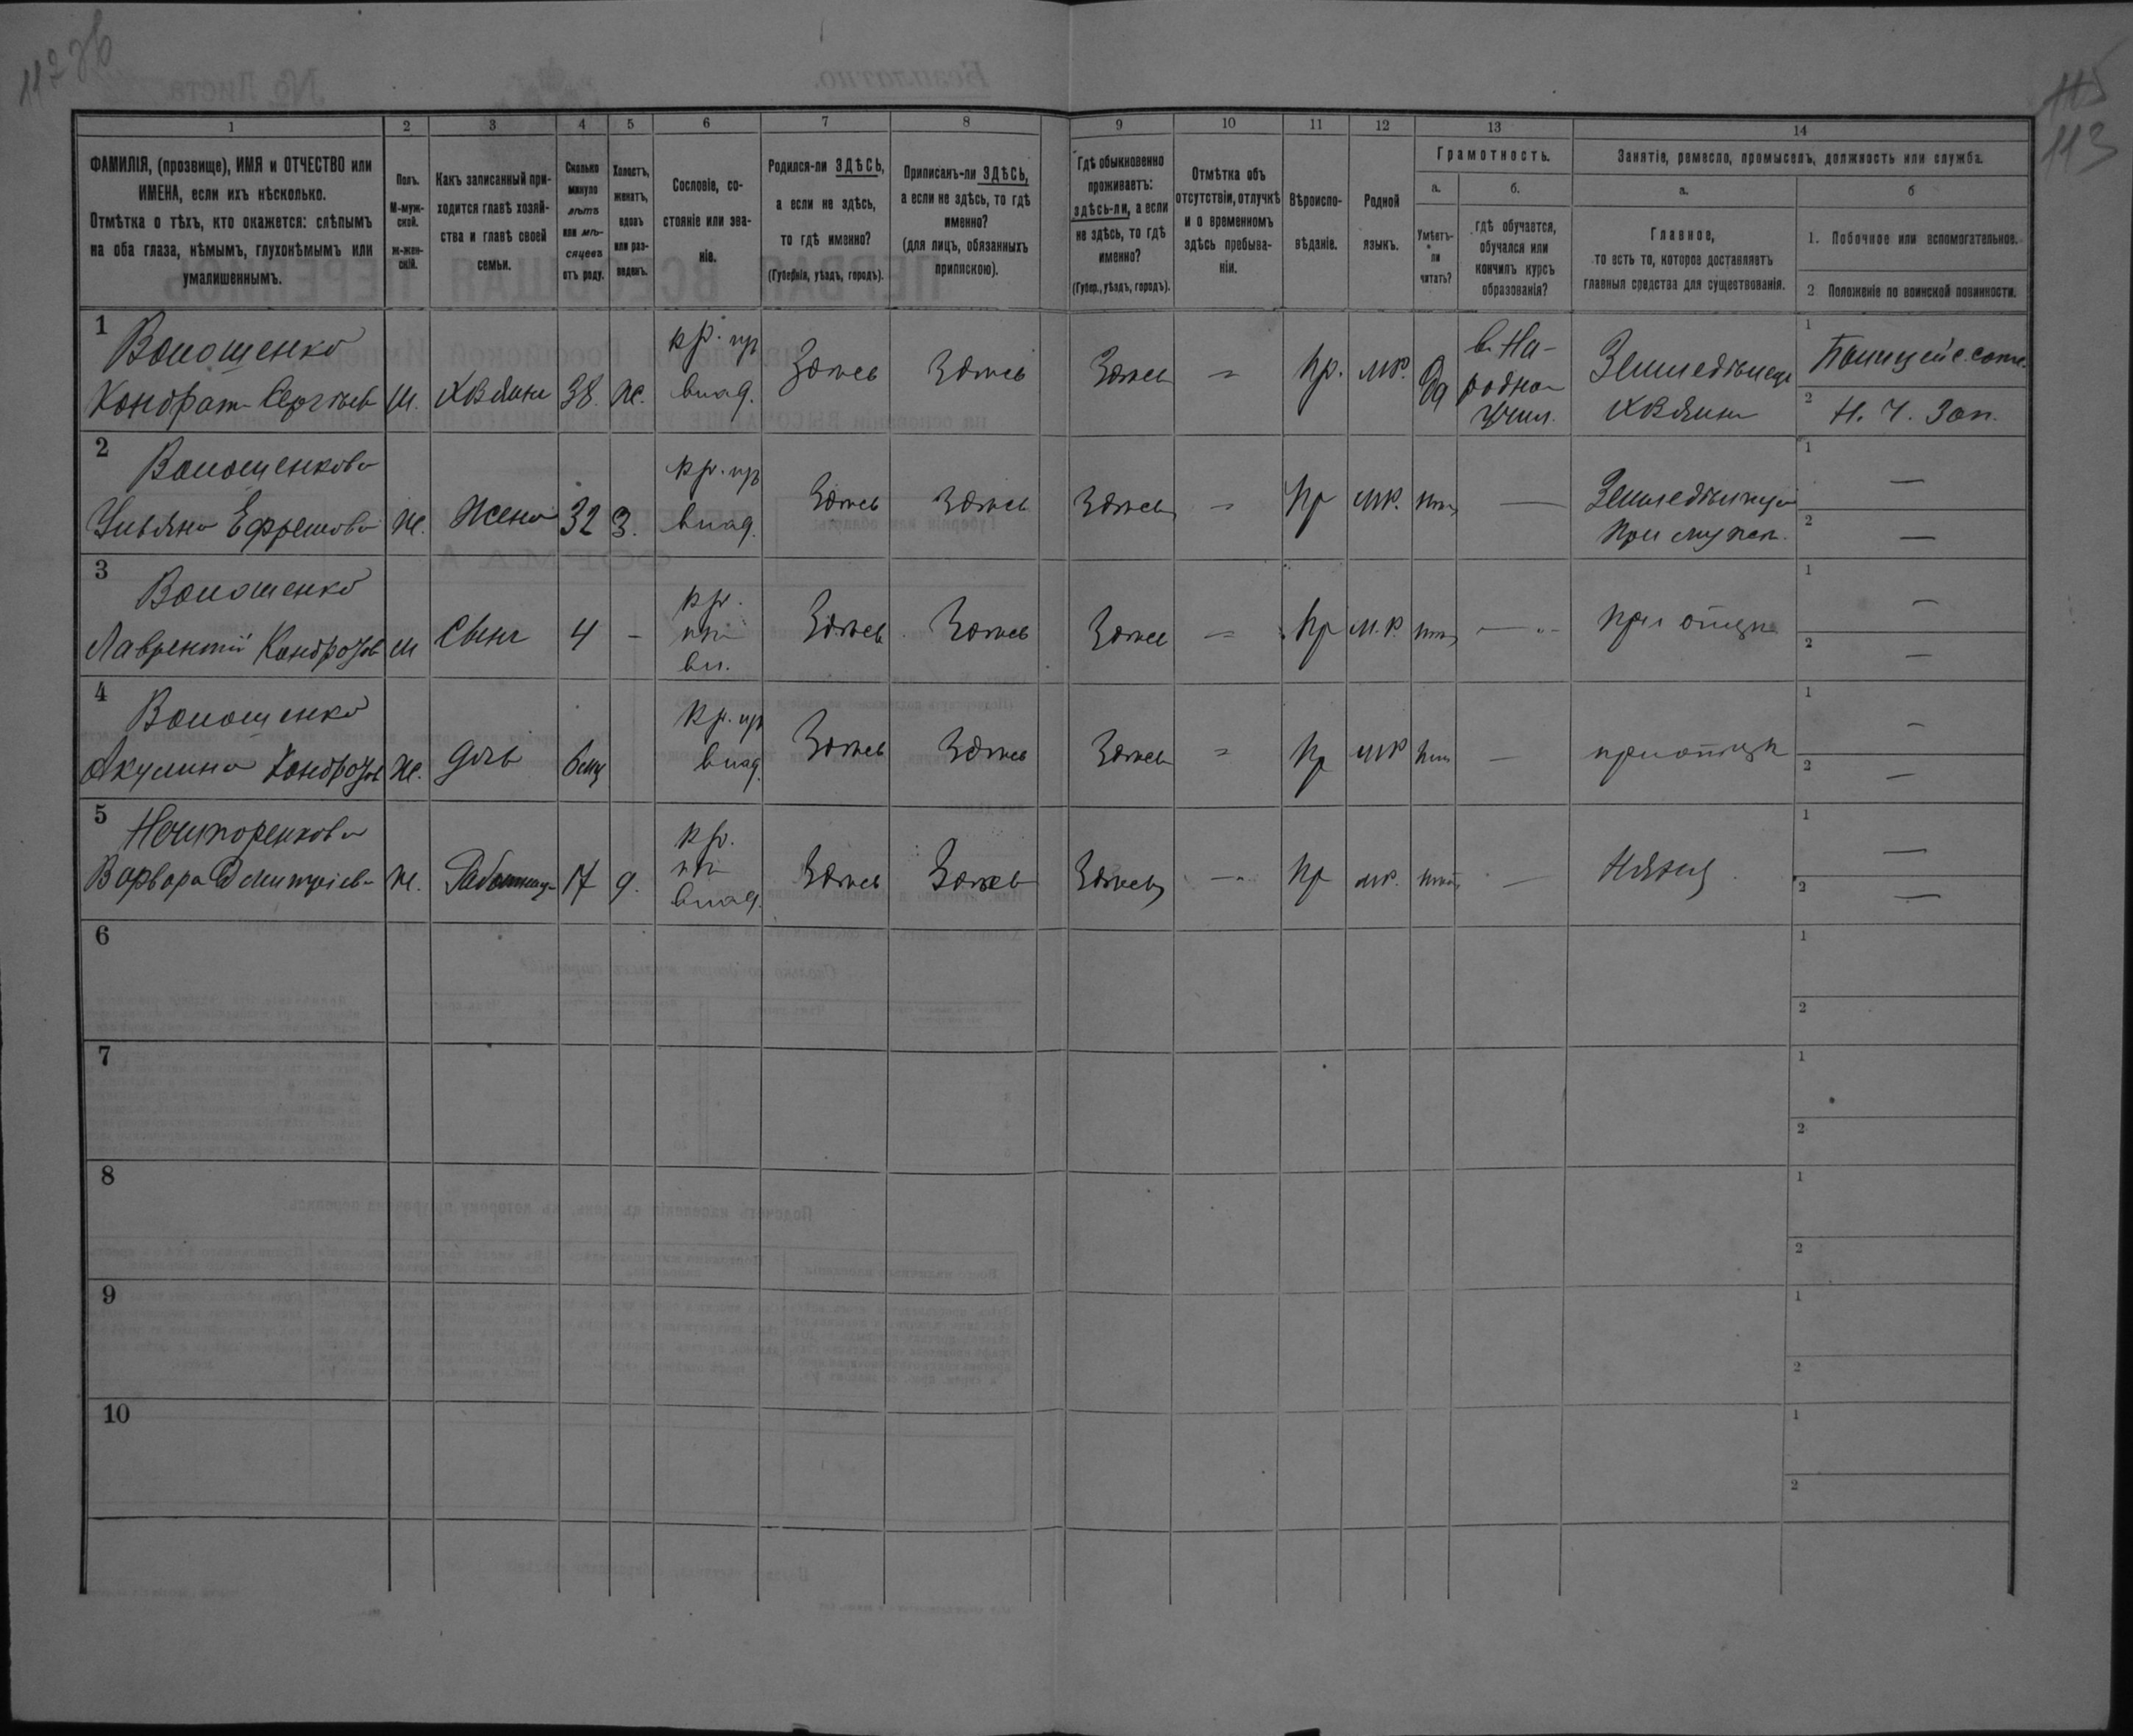 112 об
115
113
1
2
3
4
5
6
7
8
9
10
11
12
13
14
ФАМИЛІЯ, (прозвище), ИМЯ и ОТЧЕСТВО или
ИМЕНА, если ихъ нѣсколько.
Отмѣтка о тѣхъ, кто окажется: слѣпымъ
на оба глаза, нѣмымъ, глухонѣмымъ или
умалишеннымъ.
Полъ.
М-муж-
ской.
ж-жен-
скій.
Какъ записанный при-
ходится главѣ хозяй-
ства и главѣ своей
семьи.
Сколько
минуло
лѣтъ
или мѣ-
сяцевъ
отъ роду.
Холостъ,
женатъ,
вдовъ
или раз-
веденъ.
Сословіе, со-
стояніе или зва-
ніе.
Родился-ли ЗДѢСЬ,
а если не здѣсь,
то гдѣ именно?
(Губернія, уѣздъ, городъ).
Приписанъ-ли ЗДѢСЬ,
а если не здѣсь, то гдѣ
именно?
(для лицъ, обязанныхъ
припискою).
Гдѣ обыкновенно
проживаетъ:
здѣсь-ли, а если
не здѣсь, то гдѣ
именно?
(Губер., уѣздъ, городъ).
Отмѣтка объ
отсутствіи, отлучкѣ
и о временномъ
здѣсь пребыва-
ніи.
Вѣроиспо-
вѣданіе.
Родной
языкъ.
Грамотность.
а.
б.
Умѣетъ-
ли
читать?
гдѣ обучается,
обучался или
кончилъ курсъ
образованія?
Занятіе, ремесло, промыселъ, должность или служба.
а.
б
Главное,
то есть то, которое доставляетъ
главныя средства для существованія.
1. Побочное или вспомогательное.
2 Положеніе по воинской повинности.
1
Волошенко
Кондрат Сергѣев
м.
Хозяинъ
38.
ж.
кр. пр
влад.
Здѣсь
Здѣсь
Здѣсь
=
пр.
мр.
да
в На-
родном
учил.
Земледѣлецъ
хозяинъ
1
Полицейс. сотс.
2
Н. Ч. Зап.
2
Волошенкова
Ульяна Ефремова
ж.
Жена
32
З.
кр. пр
влад.
Здѣсь
Здѣсь
Здѣсь
=
пр
мр.
нѣтъ
—
Земледѣлица
при мужѣ.
1
—
2
—
3
Волошенко
Лаврентій Кондратов
м
Сынъ
4
-
кр.
вл.
Здѣсь
Здѣсь
Здѣсь
=
пр
м.р.
нѣтъ
—
при отцѣ
1
—
2
—
4
Волошенко
Акулина Кондратов
ж.
дочь
6 мц
кр. пр
влад.
Здѣсь
Здѣсь
Здѣсь
=
пр
мр
нѣтъ
—
при отцѣ
1
—
2
—
5
Нечипоренкова
Варвара Дмитріев
ж.
Работница
17
д.
кр.
влад.
Здѣсь
Здѣсь
Здѣсь
—
пр
мр.
нѣтъ
—
Няня
1
—
2
—
6
1
2
7
1
2
8
1
2
9
1
2
10
1
2